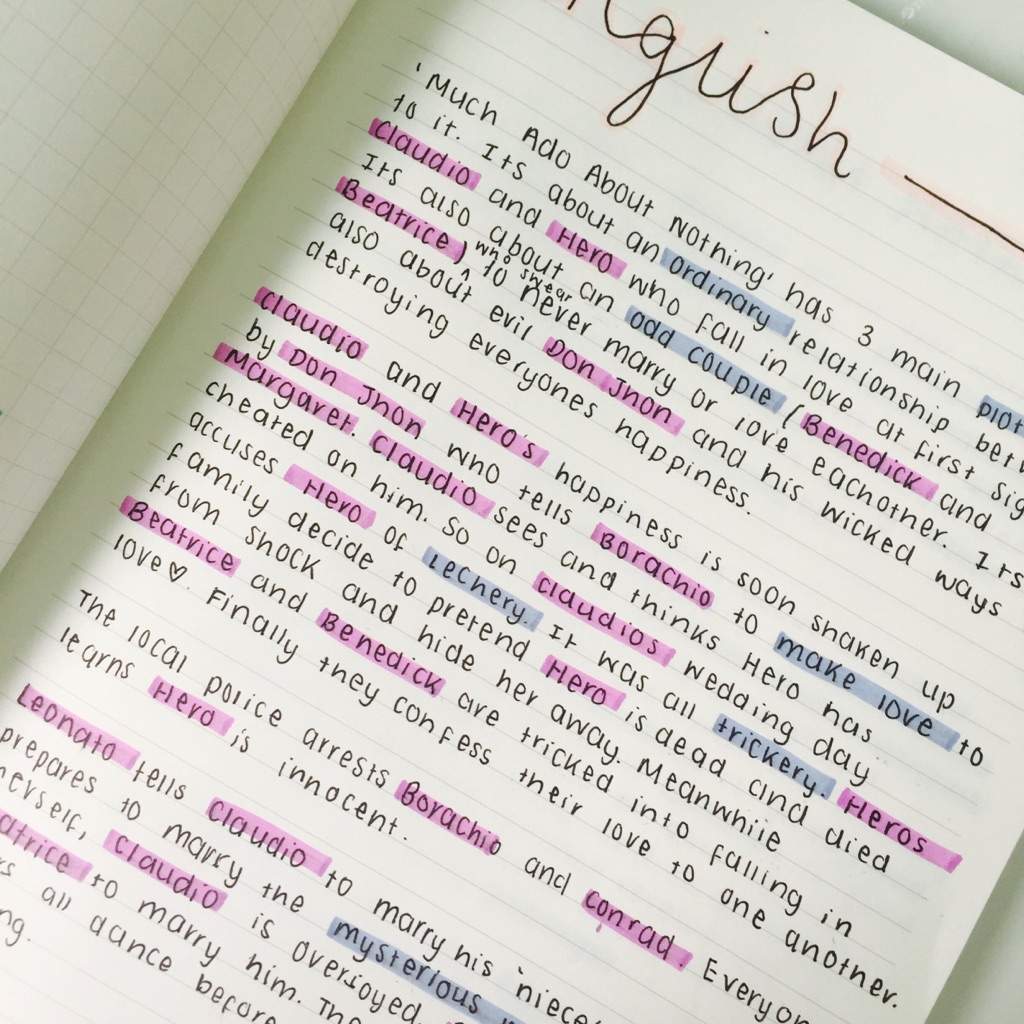 nglish
'Much Ado About Nothing' has 3 main plot
to it. Its about an ordinary relationship betw
Claudio and Hero who fall in love at first sig
Its also about an odd couple (Benedick and
Beatrice) who swear to never marry or love eachother. Its
also about evil Don Jhon and his wicked ways
destroying everyones happiness.
Claudio and Hero's happiness is soon shaken up
by Don Jhon who tells Borachio to make love to
Margaret. Claudio sees and thinks Hero has
cheated on him. So on claudios wedding day
accuses Hero of Lechery. It was all trickery. Heros
family decide to pretend Hero is dead and died
from shock and hide her away. Meanwhile
Beatrice and Benedick are tricked into falling in
love♡. Finally they confess their love to one another.
The local police arrests Borachio and conrad. Everyon
learns Hero is innocent.
Leonato tells Claudio to marry his 'niece'
prepares to marry the mysterious
herself, claudio is overjoyed.
atrice to marry him. The
rs all dance before
ng.